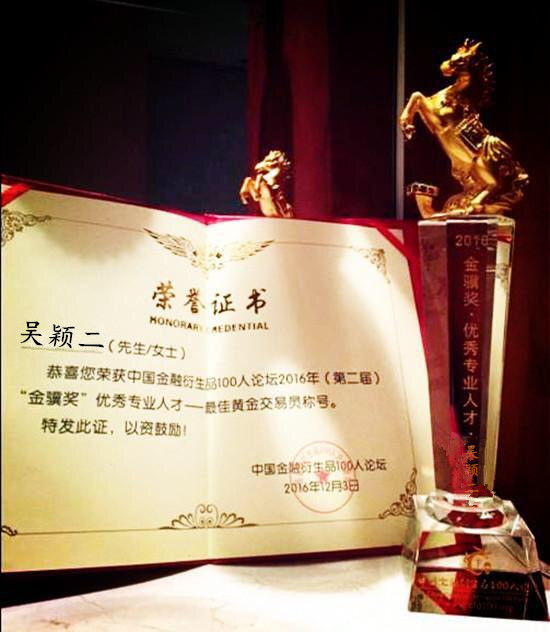 荣誉证书
HONORARY CREDENTIAL
吴颖二(先生/女士)
恭喜您荣获中国金融衍生品100人论坛2016年(第二届)
“金骥奖”优秀专业人才——最佳黄金交易员称号。
特发此证,以资鼓励!
中国金融衍生品100人论坛
2016年12月3日
2016
金骥奖·优秀专业人才·吴颖二